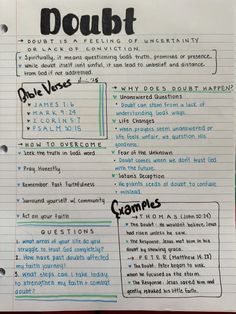 Doubt
→ DOUBT IS A FEELING OF UNCERTAINTY
OR LACK OF CONVICTION.
Spiritually, it means questioning God's truth, promises or presence.
While doubt itself isn't sinful, it can lead to unbelief and distance
from God if not addressed.
Bible Verses
JAMES 1:6
MARK 9:24
2 CORIN 5:7
PSALM 30:15
HOW TO OVERCOME
Seek the truth in God's word
Pray Honestly
Remember Past Faithfulness
Surround yourself w/ Community
Act on your Faith
QUESTIONS
1. What areas of my life do I
struggle to trust God completely?
2. How have past doubts affected
my faith journey?
3. What steps can I take today
to strengthen my faith & combat
doubt?
WHY DOES DOUBT HAPPEN?
Unanswered Questions
Doubt can stem from a lack of
understanding God's ways.
Life Changes
When prayers seem unanswered or
life feels unfair, we question His
goodness.
Fear of the Unknown
Doubt comes when we don't trust God
with the future.
Satan's Deception
He plants seeds of doubt to confuse
& mislead.
Examples
THOMAS (John 20:24)
The Doubt: He wouldn't believe Jesus
had risen unless he saw.
The Response: Jesus met him in his
doubt by showing grace.
PETER (Matthew 14:28)
The Doubt: Peter began to sink
when he focused on the storm.
The Response: Jesus saved him and
gently rebuked his little faith.